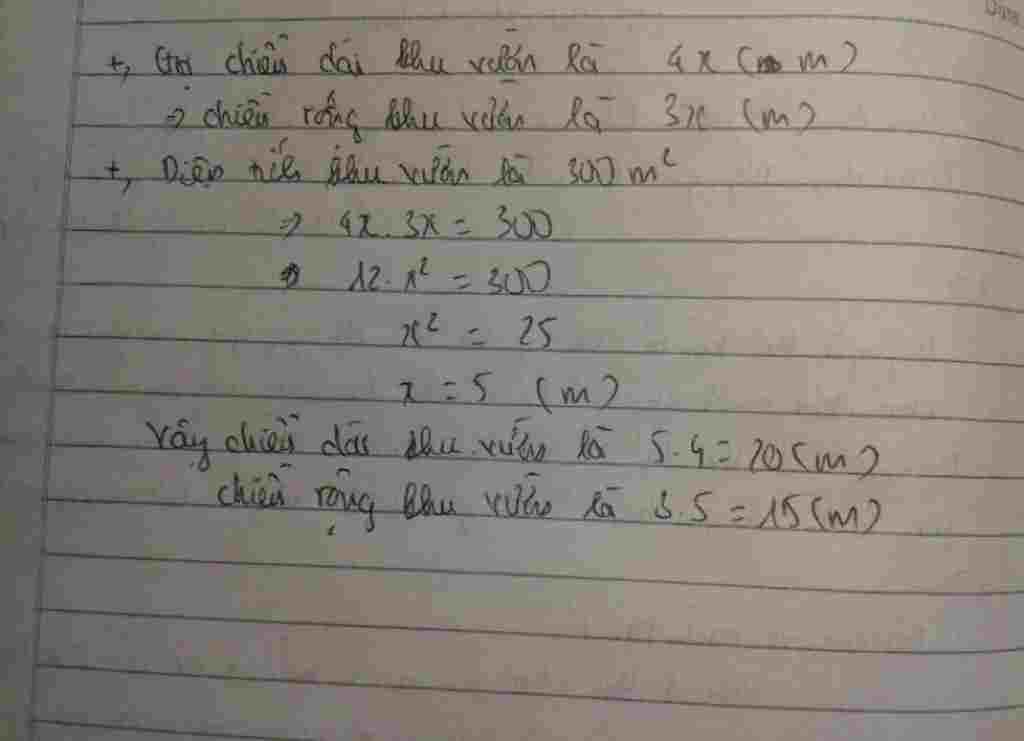 +, Gọi chiều dài khu vườn là 4x (m)
⇒ chiều rộng khu vườn là 3x (m)
+, Diện tích khu vườn là 300 m²
⇒ 4x . 3x = 300
⇒ 12 . x² = 300
x² = 25
x = 5 (m)
Vậy chiều dài khu vườn là 5.4 = 20 (m)
chiều rộng khu vườn là 3.5 = 15 (m)